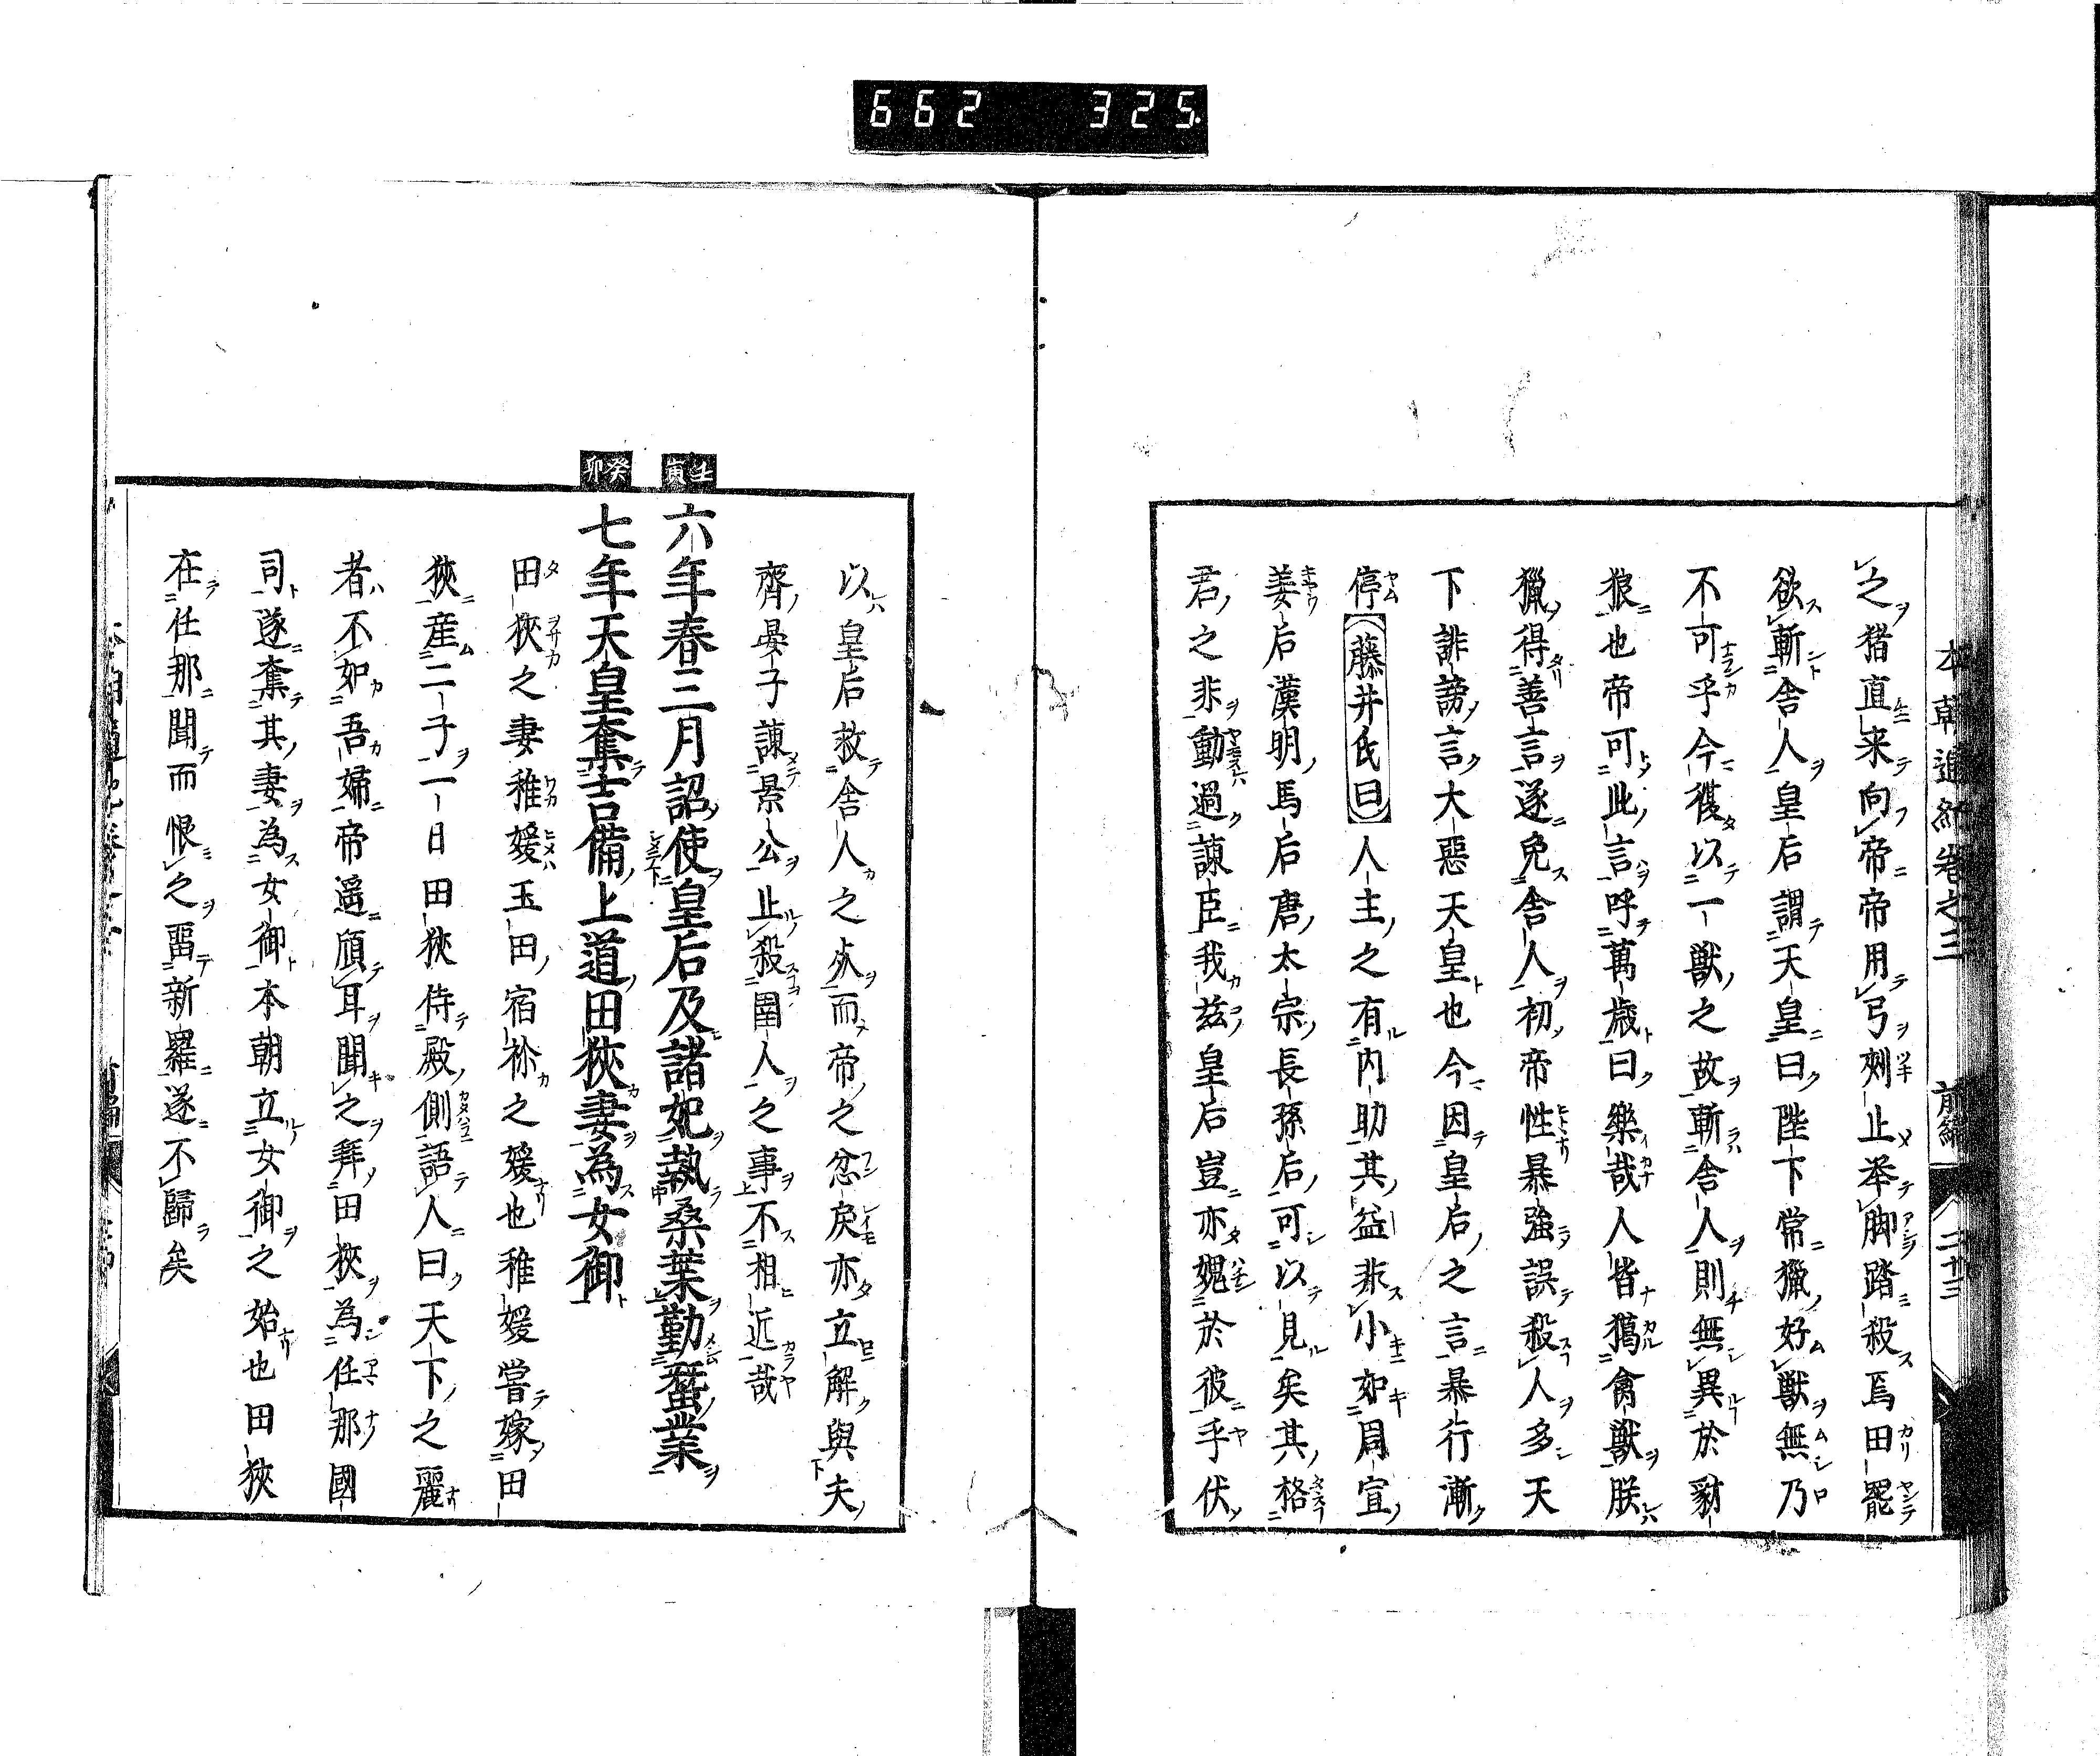 662 325
本朝通紀卷之三 前編 二十三
之猪直来向帝帝用弓刾止举脚踏殺焉田罷
欲斬舎人皇后謂天皇曰陛下常獵好獸無乃
不可乎今陛以一獸之故斬舎人則無異於豺
狼也帝可此言呼萬歳曰樂哉人皆獦禽獸朕
獵得善言遂免舎人初帝性暴強誤殺人多天
下誹謗言大惡天皇也今因皇后之言暴行漸
停藤井氏曰人主之有内助其益非小如周宣
姜后漢明馬后唐太宗長孫后可以見矣其格
君之非動過諫臣我兹皇后豈亦媿於彼乎伏
以皇后救舎人之死而帝之忿戾亦立解與夫
齊晏子諫景公止殺圉人之事不相近哉
壬寅
六年春三月詔使皇后及諸妃執桑葉勤蚕業
癸卯
七年天皇奪吉備上道田狹妻為女御
田狹之妻稚媛玉田宿祢之媛也稚媛嘗嫁田
狹産二子一日田狹侍殿側語人曰天下之麗
者不如吾婦帝遥頎耳聞之拜田狹為任那國
司遂奪其妻為女御本朝立女御之始也田狹
在任那聞而恨之畱新羅遂不歸矣